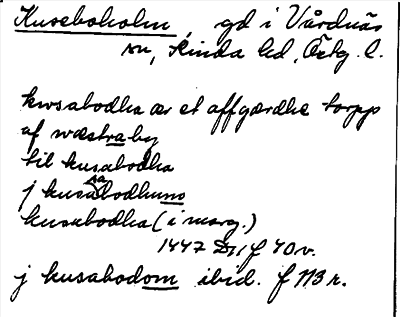 Kuseboholm, gd i Vårdnäs
sn, Kinda hd, Östg. l.
kwsabodha ær et affgærdhe torpp
af wæstraby
til kusabodha
j kusabodhum
kusabodha (i marg.)
1447 D11 f 40v.
j kusabodom ibid. f 113 r.